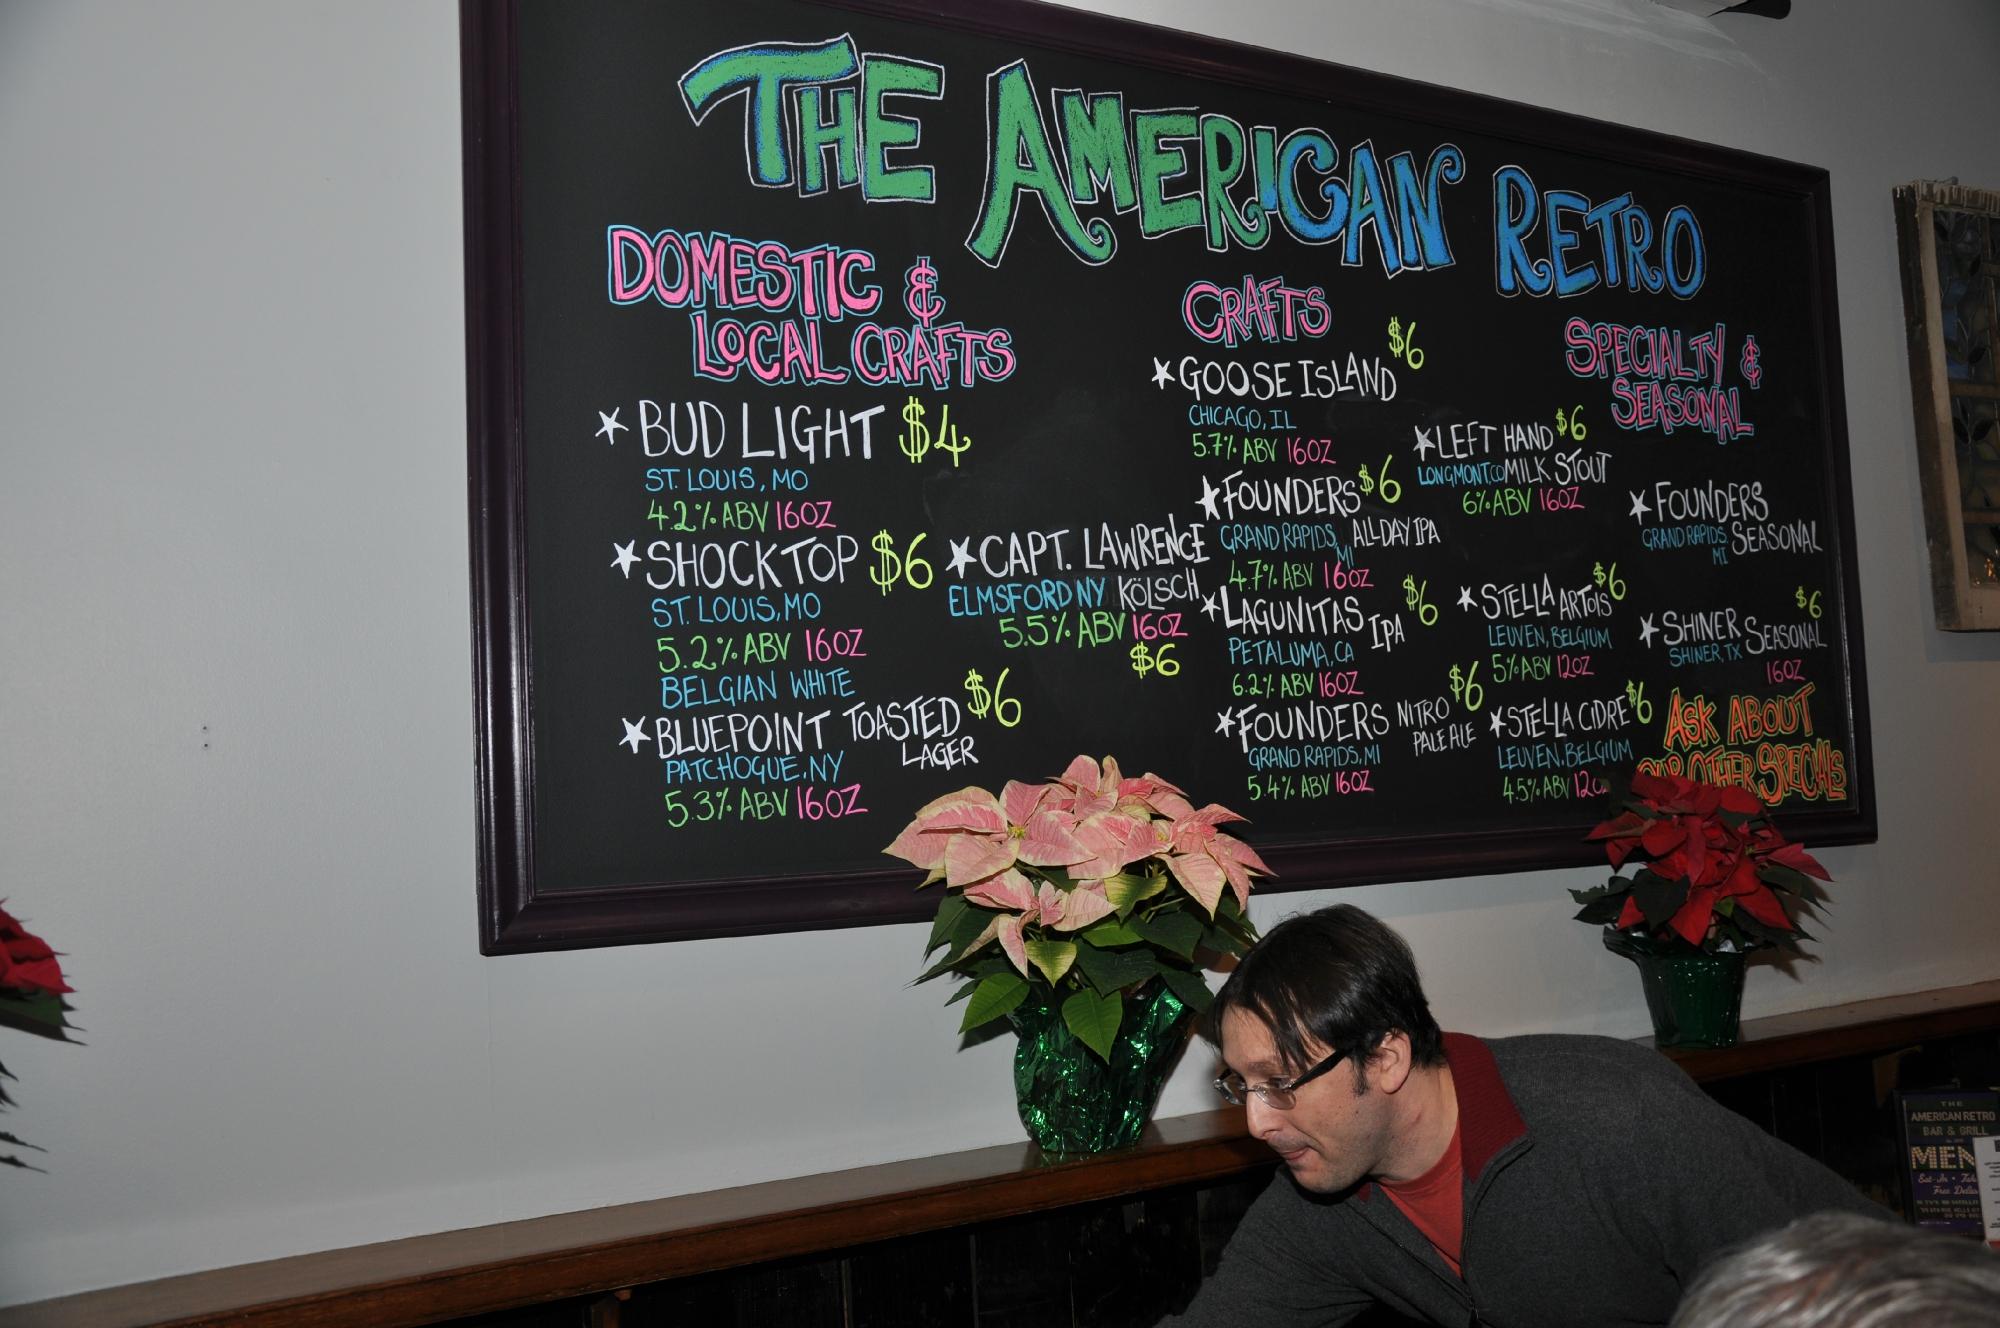 THE AMERICAN RETRO
DOMESTIC &
LOCAL CRAFTS
BUD LIGHT $4
ST. LOUIS, MO
4.2% ABV 16OZ
SHOCKTOP $6
ST. LOUIS, MO
5.2% ABV 16OZ
BELGIAN WHITE
BLUEPOINT TOASTED $6
LAGER
PATCHOGUE, NY
5.3% ABV 16OZ
CAPT. LAWRENCE
ELMSFORD NY KÖLSCH
5.5% ABV 16OZ
$6
CRAFTS
GOOSE ISLAND $6
CHICAGO, IL
5.7% ABV 16OZ
FOUNDERS $6
GRAND RAPIDS, MI ALL DAY IPA
4.7% ABV 16OZ
LAGUNITAS IPA $6
PETALUMA, CA
6.2% ABV 16OZ
FOUNDERS NITRO $6
PALE ALE
GRAND RAPIDS, MI
5.4% ABV 16OZ
SPECIALTY &
SEASONAL
LEFT HAND $6
LONGMONT, CO MILK STOUT
6% ABV 16OZ
STELLA ARTOIS $6
LEUVEN, BELGIUM
5% ABV 12OZ
STELLA CIDRE $6
LEUVEN, BELGIUM
4.5% ABV 12OZ
FOUNDERS
GRAND RAPIDS, MI SEASONAL
$6
SHINER SEASONAL
SHINER, TX
16OZ
ASK ABOUT
OUR OTHER SPECIALS
THE
AMERICAN RETRO
BAR & GRILL
MEN
Eat-In
Free